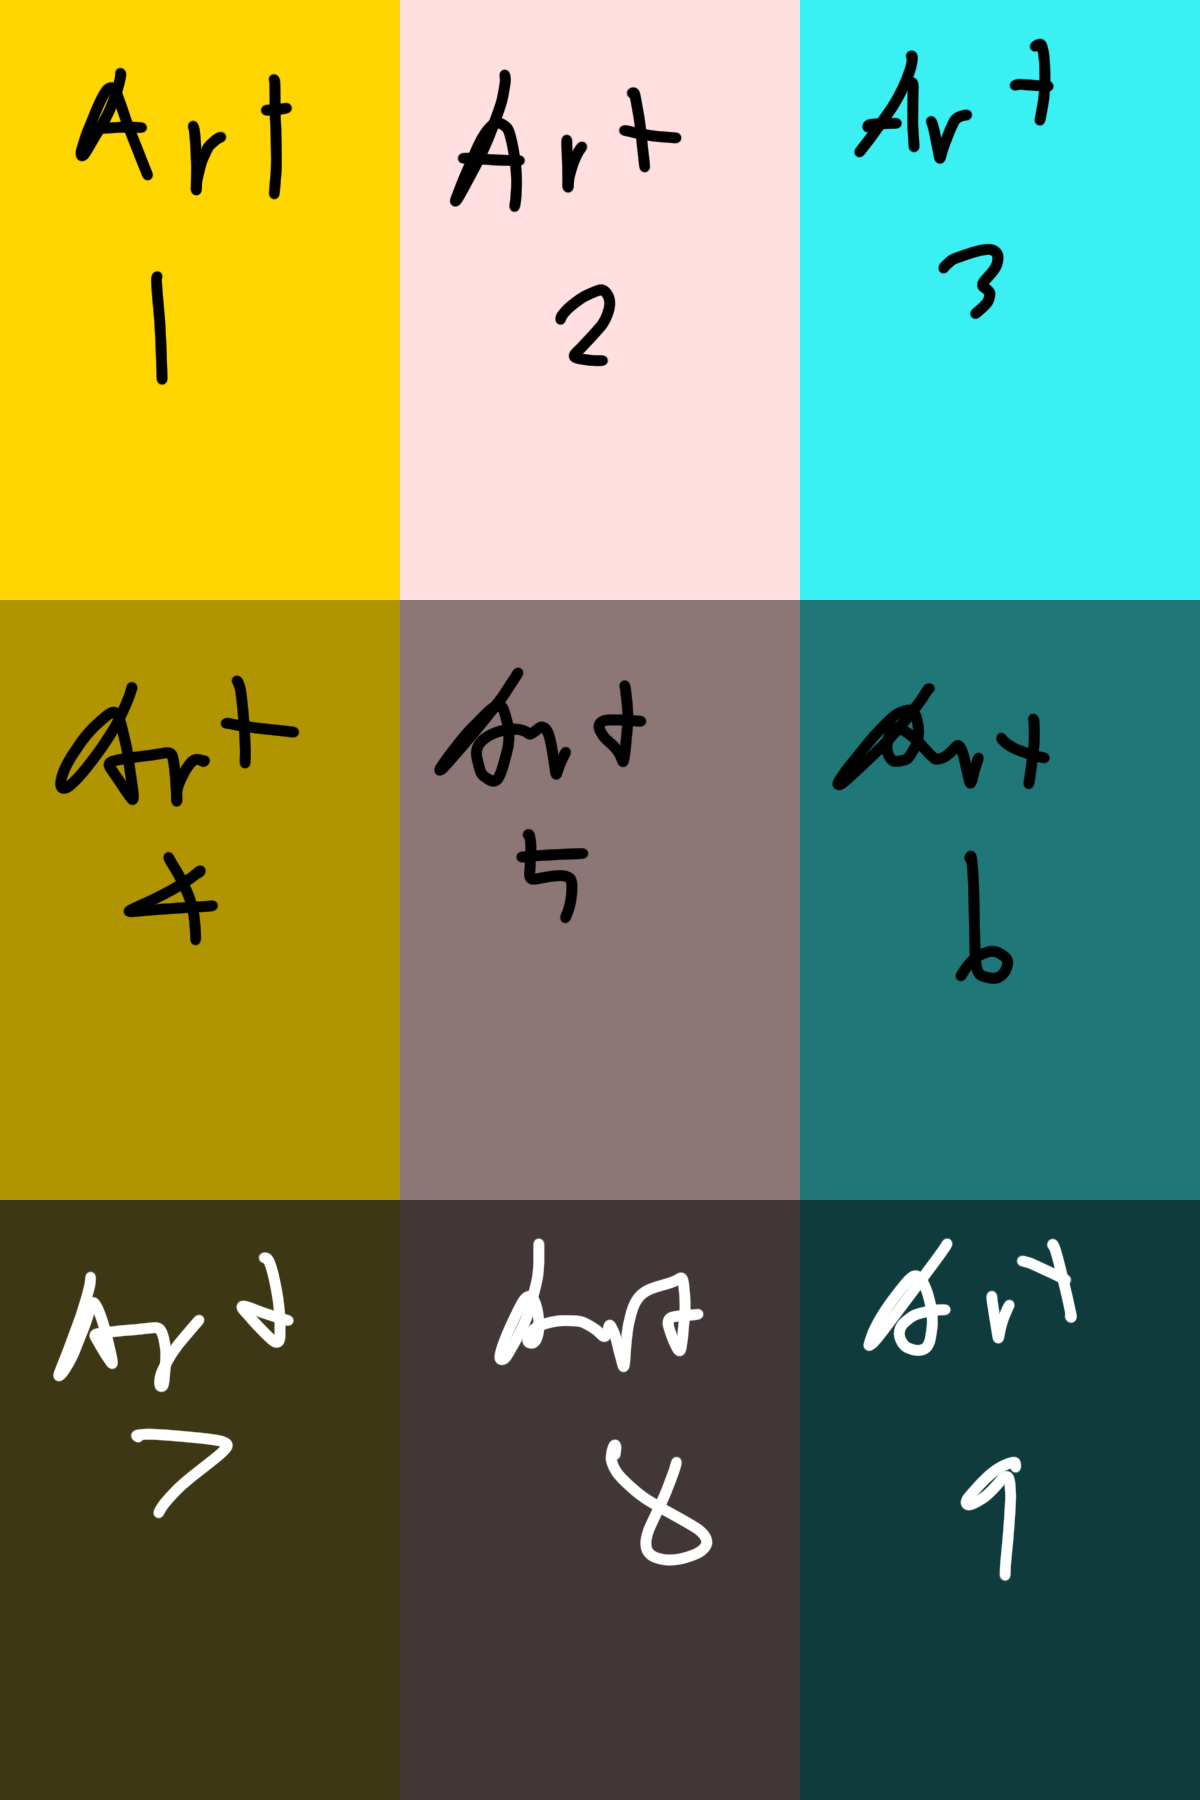 Art
1
Art
2
Art
3
Art
4
Art
5
Art
6
Art
7
Art
8
Art
9